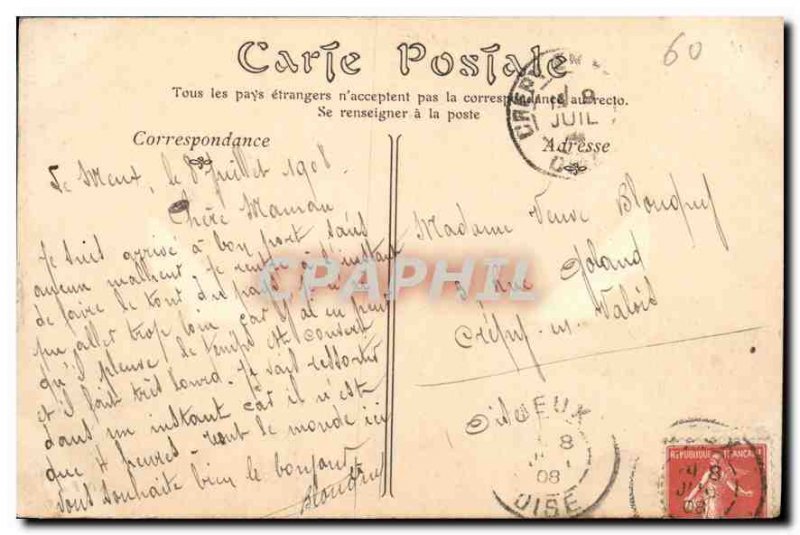 60
Carte Postale
Tous les pays étrangers n'acceptent pas la correspondance au recto.
Se renseigner à la poste
Correspondance
Adresse
CREPY
8
JUIL
Le Meux, le 8 Juillet 1908.
Chère Maman
Je suis arrivé à bon port sans
aucun malheur. Je rentre à l'instant
de faire le tour du pays. Je n'ai
pu aller trop loin car j'ai eu peur
qu'il pleuve. Le temps est couvert
et il fait très lourd. Je vais ressortir
dans un instant car il n'est
que 4 heures. Tout le monde ici
vous souhaite bien le bonjour
Madame Veuve
Rue Goland
Crépy-en-Valois
Oise
CPAPHIL
LE MEUX
8
08
OISE
RÉPUBLIQUE FRANÇAISE
8